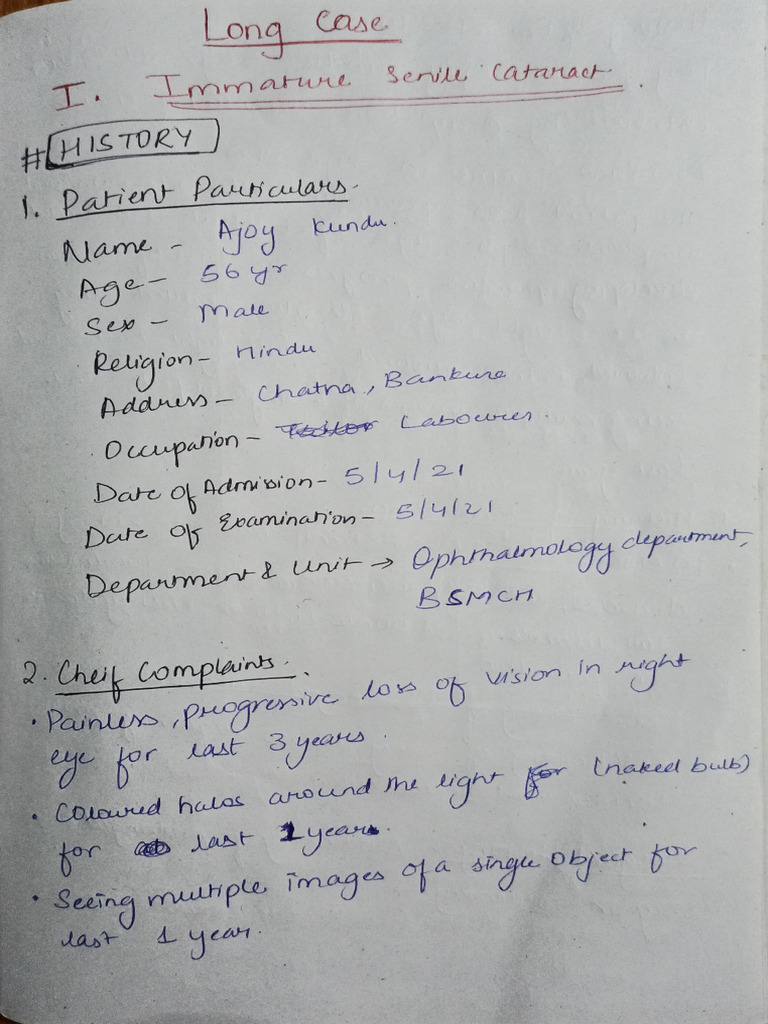 Long Case
I. Immature Senile Cataract
# HISTORY
1. Patient Particulars.
Name - Ajoy Kundu.
Age - 56 yr
Sex - Male
Religion - Hindu
Address - Chatna, Bankura
Occupation - Labourer.
Date of Admission - 5/4/21
Date of Examination - 5/4/21
Department & Unit → Ophthalmology department,
BSMCH
2. Cheif Complaints.
• Painless, progressive loss of vision in right
eye for last 3 years.
• Coloured halos around the light (naked bulb)
for last 1 year.
• Seeing multiple images of a single object for
last 1 year.